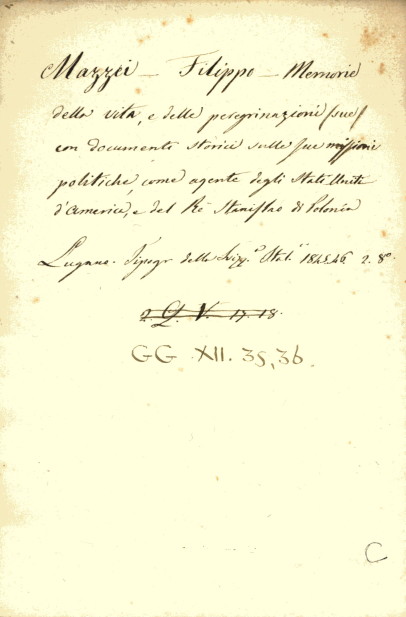 Mazzei — Filippo — Memorie
della vita, e delle peregrinazioni sue
con documenti storici sulle sue missioni
politiche, come agente degli Stati Uniti
d'America, e del Rè Stanislao di Polonia
Lugano. Tipogr della Svizz.ª Ital.ª 1845.46 2. 8º
2. Q. V. 17.18.
GG XII. 35, 36.
C